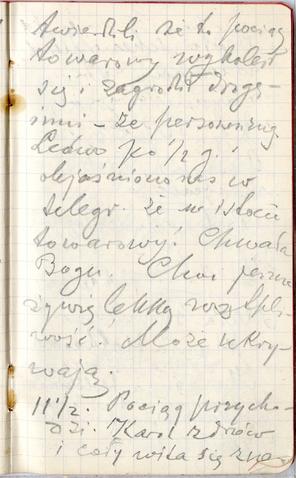 twierdzili że to pociąg
towarowy wykoleił
się i zagrodził drogę –
inni – że personenzug.
Ledwo po 1/2 g.
objaśniono nas w
telegr. że na istocie
towarowy! Chwała
Bogu. Choć jeszcze
żywię lekką wątpli-
wość. Może ukry-
wają.
11 1/2. Pociąg przycho-
dzi. Karol zdrów
i cały wita się zna-